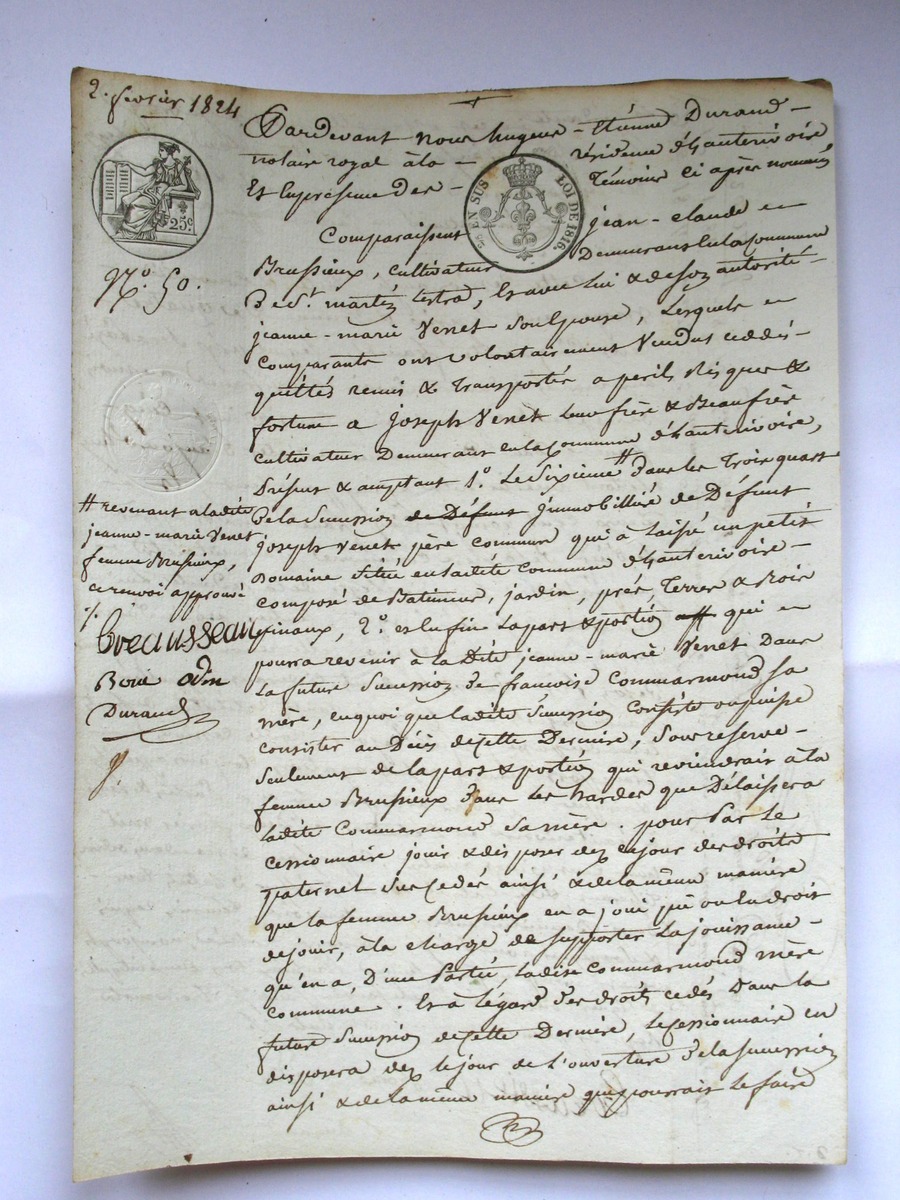 2. fevrier 1824
Pardevant nous hugues - Etienne Durand -
notaire royal à la - résidence d'hauterivoire
Et En présence des - Témoins ci après nommés
25c
EN SUS LOI DE 1816.
Comparaissent jean - claude
Brussieux, cultivateur Demeurant En la Commune
De St. martin lestra, Et avec lui & de son autorité -
N.o 50.
jeanne - marie Venet Son Epouse, Lesquels
Comparants ont volontairement Vendus cèddés -
quittés remis & Transportés a perils Risques &
fortune a joseph Venet leur frère & Beaufrère
cultivateur Demeurant en la Commune d'hauterivoire,
Présent & acceptant 1.o Le Sixieme # dans les Trois quart
De la Succession de Défunt jmmobillière de Défunt
joseph Venet père Commun qui à laissé un petit
Domaine Situé en ladite Commune d'hauterivoire -
Composé de Batiments, jardin, prés, Terres & Bois
pinaux, 2.o et Enfin La part & portion qui
pourra revenir à la Dite jeanne - marie Venet Dans
La future Succession De francoise Commarmond Sa
mère, en quoi que ladite Succession Consiste ou puisse
Consister au Décès de cette Dernière, Sous réserve -
Seulement de la part & portion qui reviendrait à la
femme Brussieux Dans les hardes que Délaissera
ladite Commarmond Sa mère. pour Par le
cessionnaire jouir & disposer dez ce jour des droits
paternel Sus Cedés ainsi & de la même manière
que la femme Brussieux en a joui pû ou Eu droit
de jouir, à la charge de supporter La jouissance -
qu'en a, D'une Partie ladite Commarmond mère
Commune. Et à l'égard des droits cedés Dans la
future Succession de cette Dernière, le Cessionnaire en
disposera dez le jour de l'ouverture De la Succession
ainsi & de la même manière que pourrait le faire
# revenant a ladite
jeanne - marie Venet
femme Brussieux,
ce renvoi approuvé
Durand